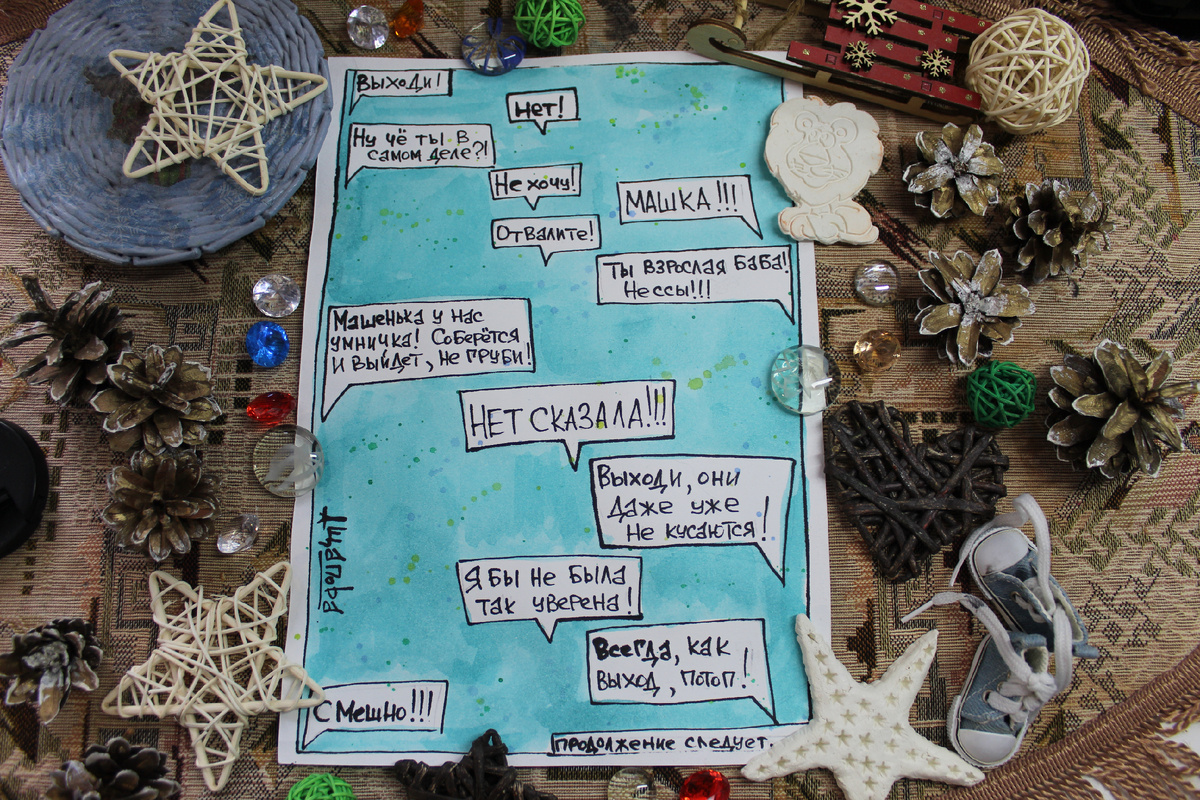 Выходи!
Нет!
Ну чё ты в
самом деле?!
Не хочу!
МАШКА!!!
Отвалите!
Ты взрослая баба!
Не ссы!!!
Машенька у нас
умничка! Соберётся
и выйдет, не груби!
НЕТ СКАЗАЛА!!!
Выходи, они
даже уже
не кусаются!
Я бы не была
так уверена!
Всегда, как
выход, потоп!
Смешно!!!
продолжение следует.